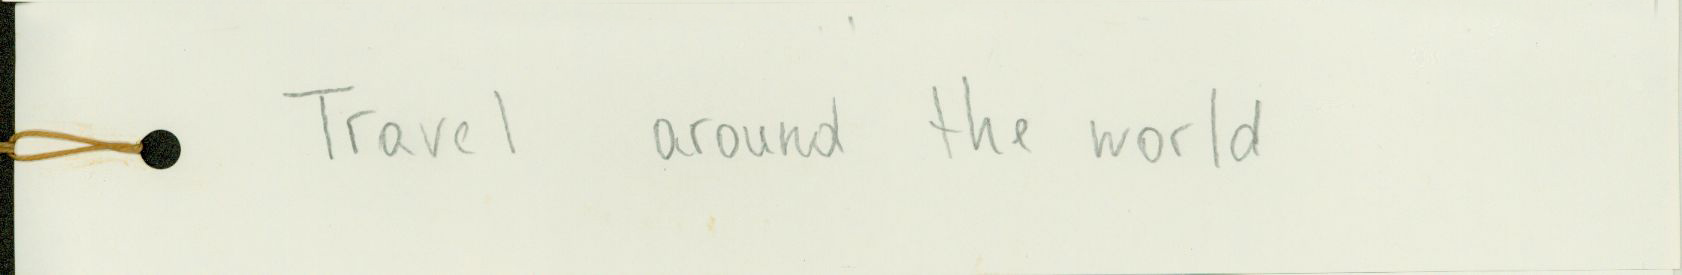 Travel around the world